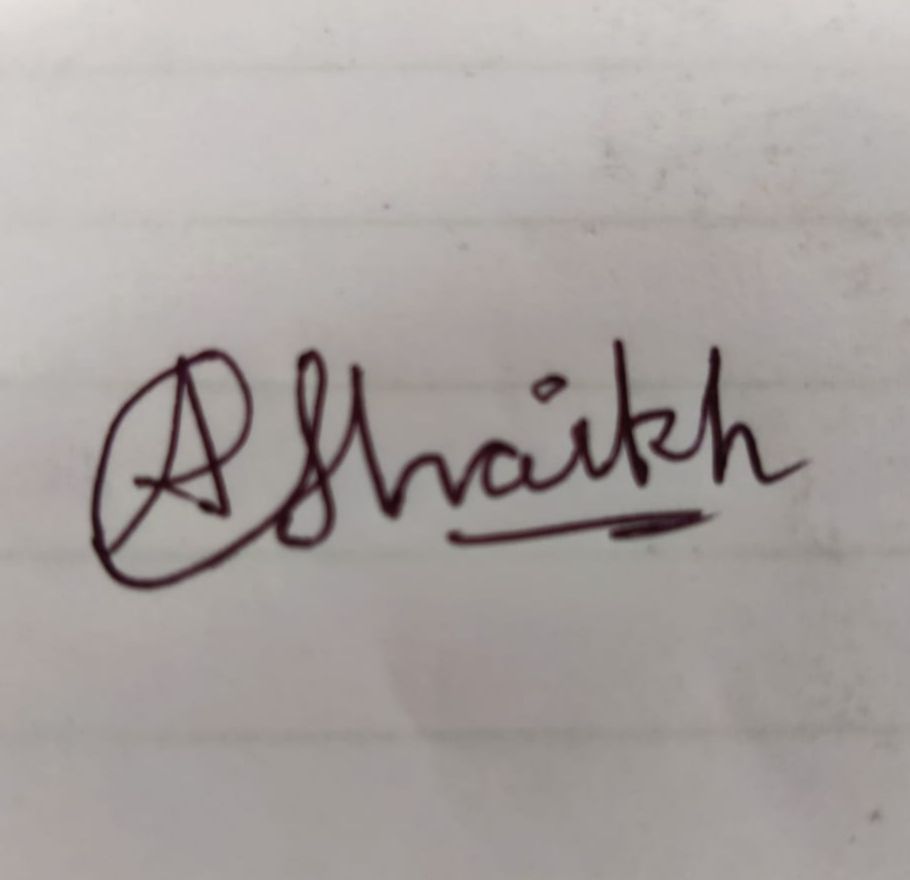 A Shaikh